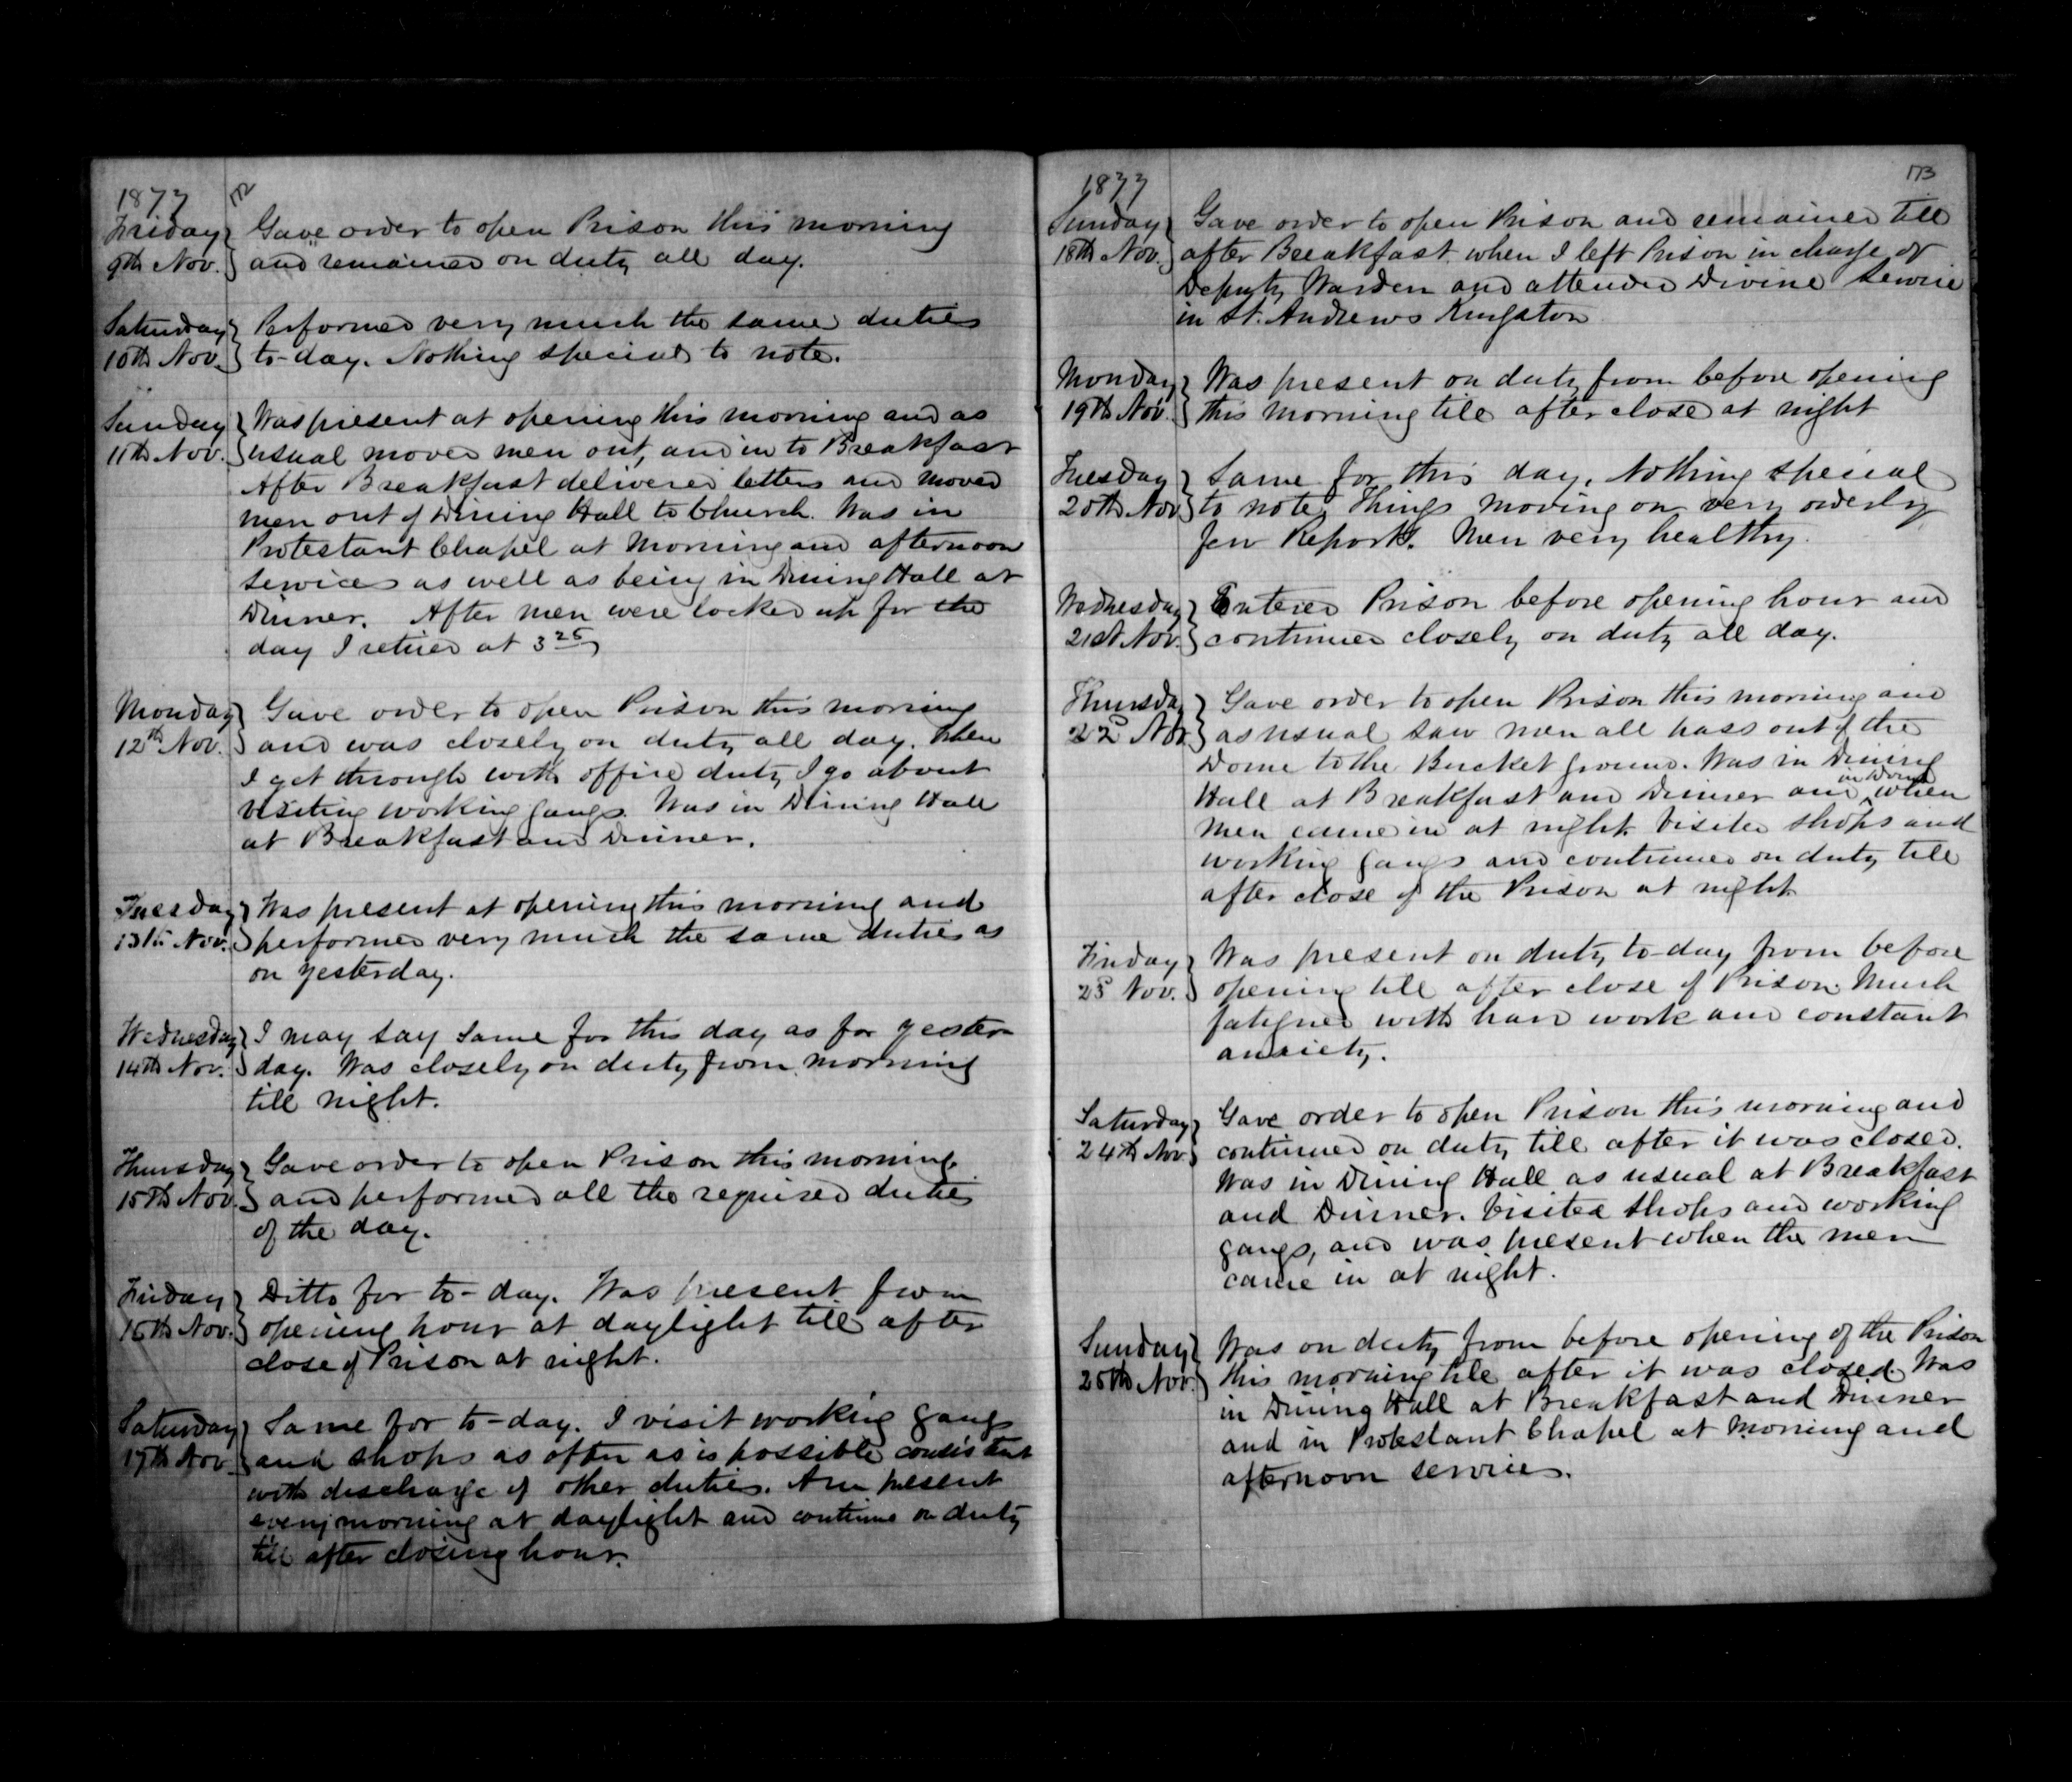 1877
172
Friday 9th Nov. } Gave order to open Prison this morning
and remained on duty all day.
Saturday 10th Nov. } Performed very much the same duties
to-day. Nothing special to note.
Sunday 11th Nov. } Was present at opening this morning and as
usual moved men out, and in to Breakfast
After Breakfast delivered letters and moved
men out of Dining Hall to Church. Was in
Protestant Chapel at Morning and afternoon
services as well as being in Dining Hall at
Dinner. After men were locked up for the
day I retired at 3 25
Monday 12th Nov. } Gave order to open Prison this morning
and was closely on duty all day. When
I get through with office duty I go about
visiting working gangs. Was in Dining Hall
at Breakfast and Dinner.
Tuesday 13th Nov. } Was present at opening this morning and
performed very much the same duties as
on yesterday.
Wednesday 14th Nov. } I may say same for this day as for yester
day. Was closely on duty from morning
till night.
Thursday 15th Nov. } Gave order to open Prison this morning
and performed all the required duties
of the day.
Friday 16th Nov. } Ditto for to-day. Was present from
opening hour at daylight till after
close of Prison at night.
Saturday 17th Nov } Same for to-day. I visit working gangs
and shops as often as is possible consistent
with discharge of other duties. Am present
every morning at daylight and continue on duty
till after closing hour.
1877
173
Sunday 18th Nov. } Gave order to open Prison and remained till
after Breakfast when I left Prison in charge of
Deputy Warden and attended Divine Service
in St. Andrews Kingston
Monday 19th Nov. } Was present on duty from before opening
this morning till after close at night
Tuesday 20th Nov } Same for this day. Nothing special
to note. Things moving on very orderly
few Reports. Men very healthy.
Wednesday 21st Nov. } Entered Prison before opening hour and
continued closely on duty all day.
Thursday 22d Nov. } Gave order to open Prison this morning and
as usual saw men all pass out of the
Dome to the Bucket ground. Was in Dining
Hall at Breakfast and Dinner and in Dome when
men came in at night. Visited shops and
working gangs and continued on duty till
after close of the Prison at night.
Friday 23d Nov. } Was present on duty to-day from before
opening till after close of Prison. Much
fatigued with hard work and constant
anxiety.
Saturday 24th Nov. } Gave order to open Prison this morning and
continued on duty till after it was closed.
Was in Dining Hall as usual at Breakfast
and Dinner. Visited shops and working
gangs, and was present when the men
came in at night.
Sunday 25th Nov. } Was on duty from before opening of the Prison
this morning till after it was closed. Was
in Dining Hall at Breakfast and Dinner
and in Protestant Chapel at Morning and
afternoon services.